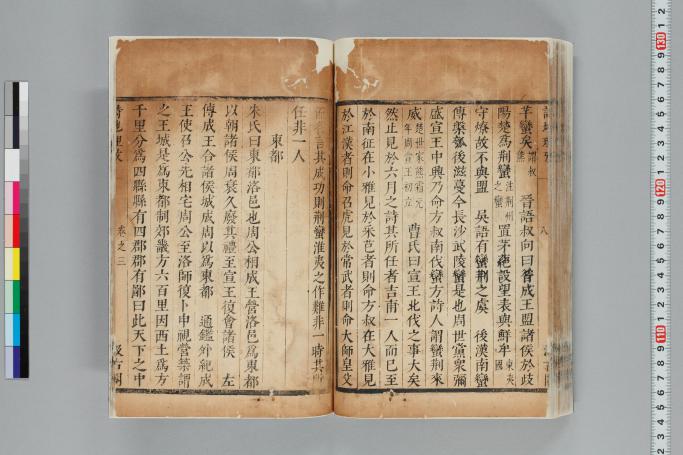 羋蠻矣 謂叔熊 晉語叔向曰昔成王盟諸侯於歧
陽楚為荊蠻 注荊州之蠻 置茅蕝設望表與鮮牟 東夷國
守燎故不與盟 吳語有蠻荊之虞 後漢南蠻
傳槃瓠後滋蔓今長沙武陵蠻是也周世黨衆彌
盛宣王中興乃命方叔南伐蠻方詩人謂蠻荊來
威 楚世家熊霜元年周宣王初立 曹氏曰宣王北伐之事大矣
然止見於六月之詩其所任者吉甫一人而已至
於南征在小雅見於采芑者則命方叔在大雅見
於江漢者則命召虎見於常武者則命大師皇父
言其成功則荊蠻淮夷之作難非一時其
任非一人
東都
朱氏曰東都洛邑也周公相成王營洛邑為東都
以朝諸侯周衰久廢其禮至宣王復會諸侯 左
傳成王合諸侯城成周以為東都 通鑑外紀成
王使召公先相宅周公至洛師復卜申視營築謂
之王城是為東都制郊畿方六百里因西土為方
千里分為四縣縣有四郡郡有鄙曰此天下之中
詩地理攷
卷之三
汲古閣